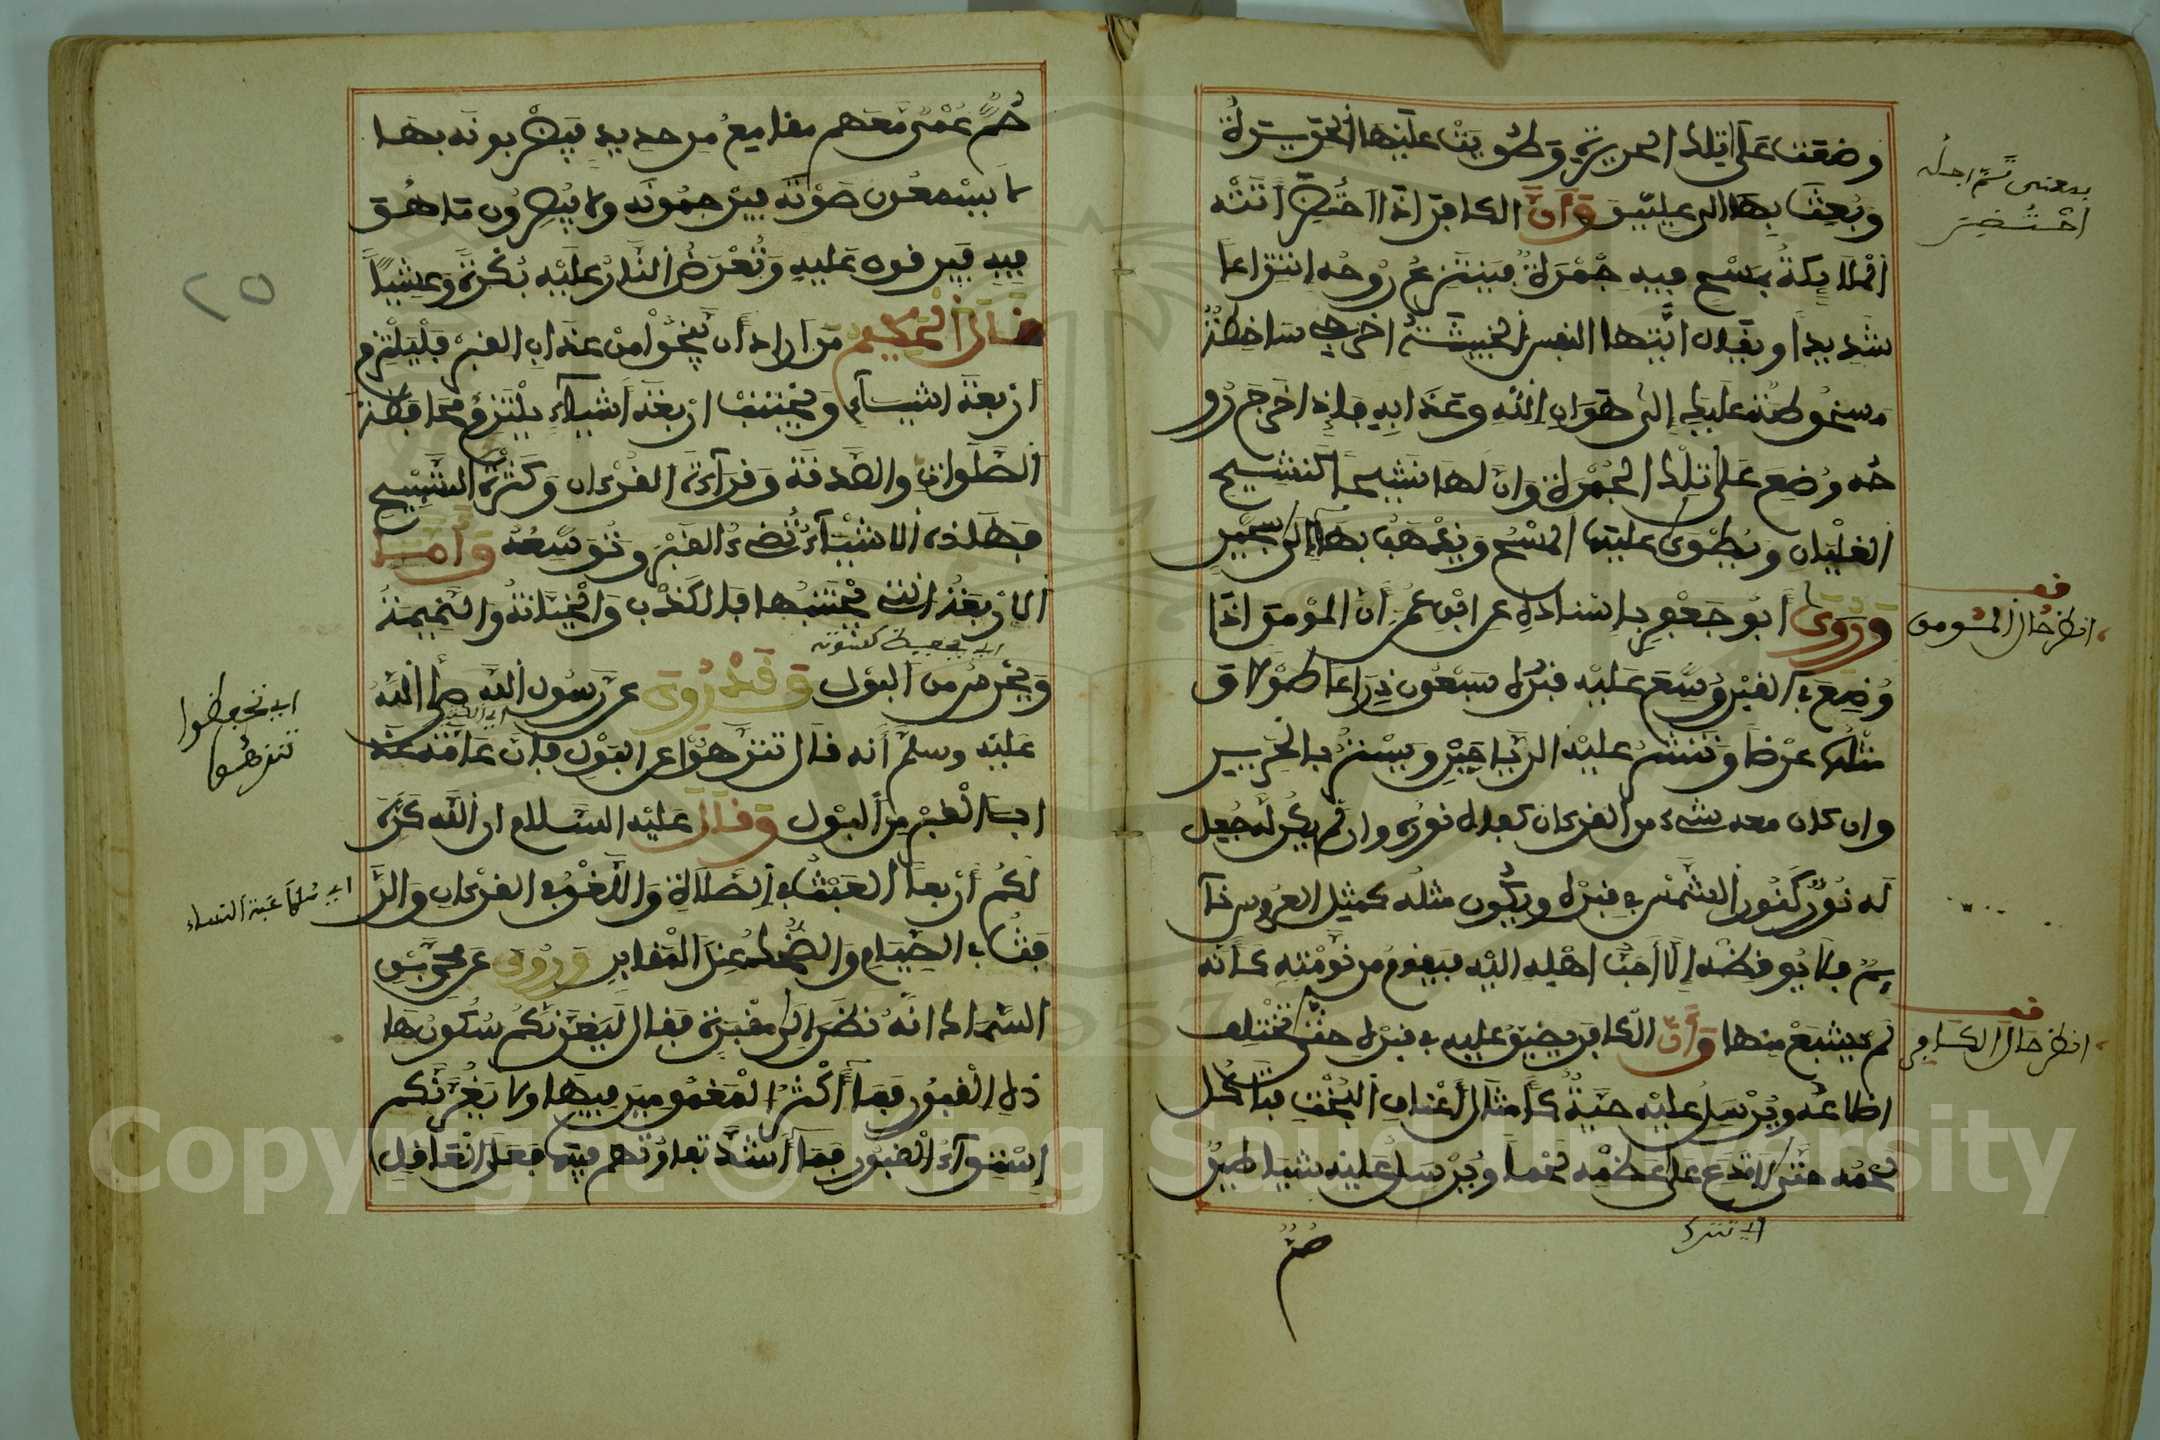 وضعت على تلك الحريرة وطويت عليها الحريرة
وبعث بها الى عليين وان الكافر اذا احتضر اتته
الملائكة بمسح فيه جمرة فينتزع روحه انتزاعا
شديدا ويقال ايتها النفس الخبيثة اخرجي ساخطة
مسخوطة عليك الى هوان الله وعذابه فاذا اخرج رو
حه وضع على تلك الجمرة وان لها نشيجا كنشيج
الغليان ويطوى عليها المسح ويذهب بها الى سجين
وروى ابو جعفر باسناده عن ابن عمر ان المومن اذا
وضع في القبر وسع عليه قبره سبعون ذراعا طولا و
مثله عرضا وتنثر عليه الرياحين ويستر بالحرير
وان كان معه شيء من القرءان كفاه نوره وان لم يكن له جعل
له نور كنور الشمس في قبره ويكون مثله كمثل العروس نا
يم فلا يوقظه الا احب اهله اليه فيقوم من نومته كانه
لم يشبع منها وان الكافر يضيق عليه في قبره حتى تختلف
اضلاعه ويرسل عليه حية كامثال اعناق البخت فتاكل
لحمه حتى لا تدع على عظمه لحما ويرسل عليه شياطين
اي تترك
صم
بمعنى تم اجله
احتضر
قف
انظر حال المومن
قف
انظر حال الكافر
صم عمي معهم مقامع من حديد فيضربونه بها
لا يسمعون صوته فيرحمونه ولا يبصرون ما هو
فيه فيرقون عليه وتعرض النار عليه بكرة وعشيا
قال الحكيم من اراد ان ينجوا من عذاب القبر فليلتزم
اربعة اشياء ويجتنب اربعة اشياء يلتزم محافظة
الصلوات والصدقة وقراءة القرءان وكثرة التسبيح
فهذه الاشياء تضيء القبر وتوسعه واما
الاربعة التي يجتنبها فالكذب والخيانة والنميمة
ويحترس من البول وقد روى عن رسول الله صلى الله
عليه وسلم انه قال تنزهوا عن البول فان عامة عذ
اب القبر من البول وقال عليه السلام ان الله كره
لكم اربعا العبث في الصلاة واللغو في القرءان والر
فث في الصيام والضحك عند المقابر وروى عن محمد بن
السماك انه نظر الى مقبرة فقال ليغرنكم سكون ها
ذه القبور فما اكثر المغمومين فيها ولا يغرنكم
استواء القبور فما اشد تفاوتهم فيها فعلى العاقل
اي تحفظوا
تنزهوا
٢٥